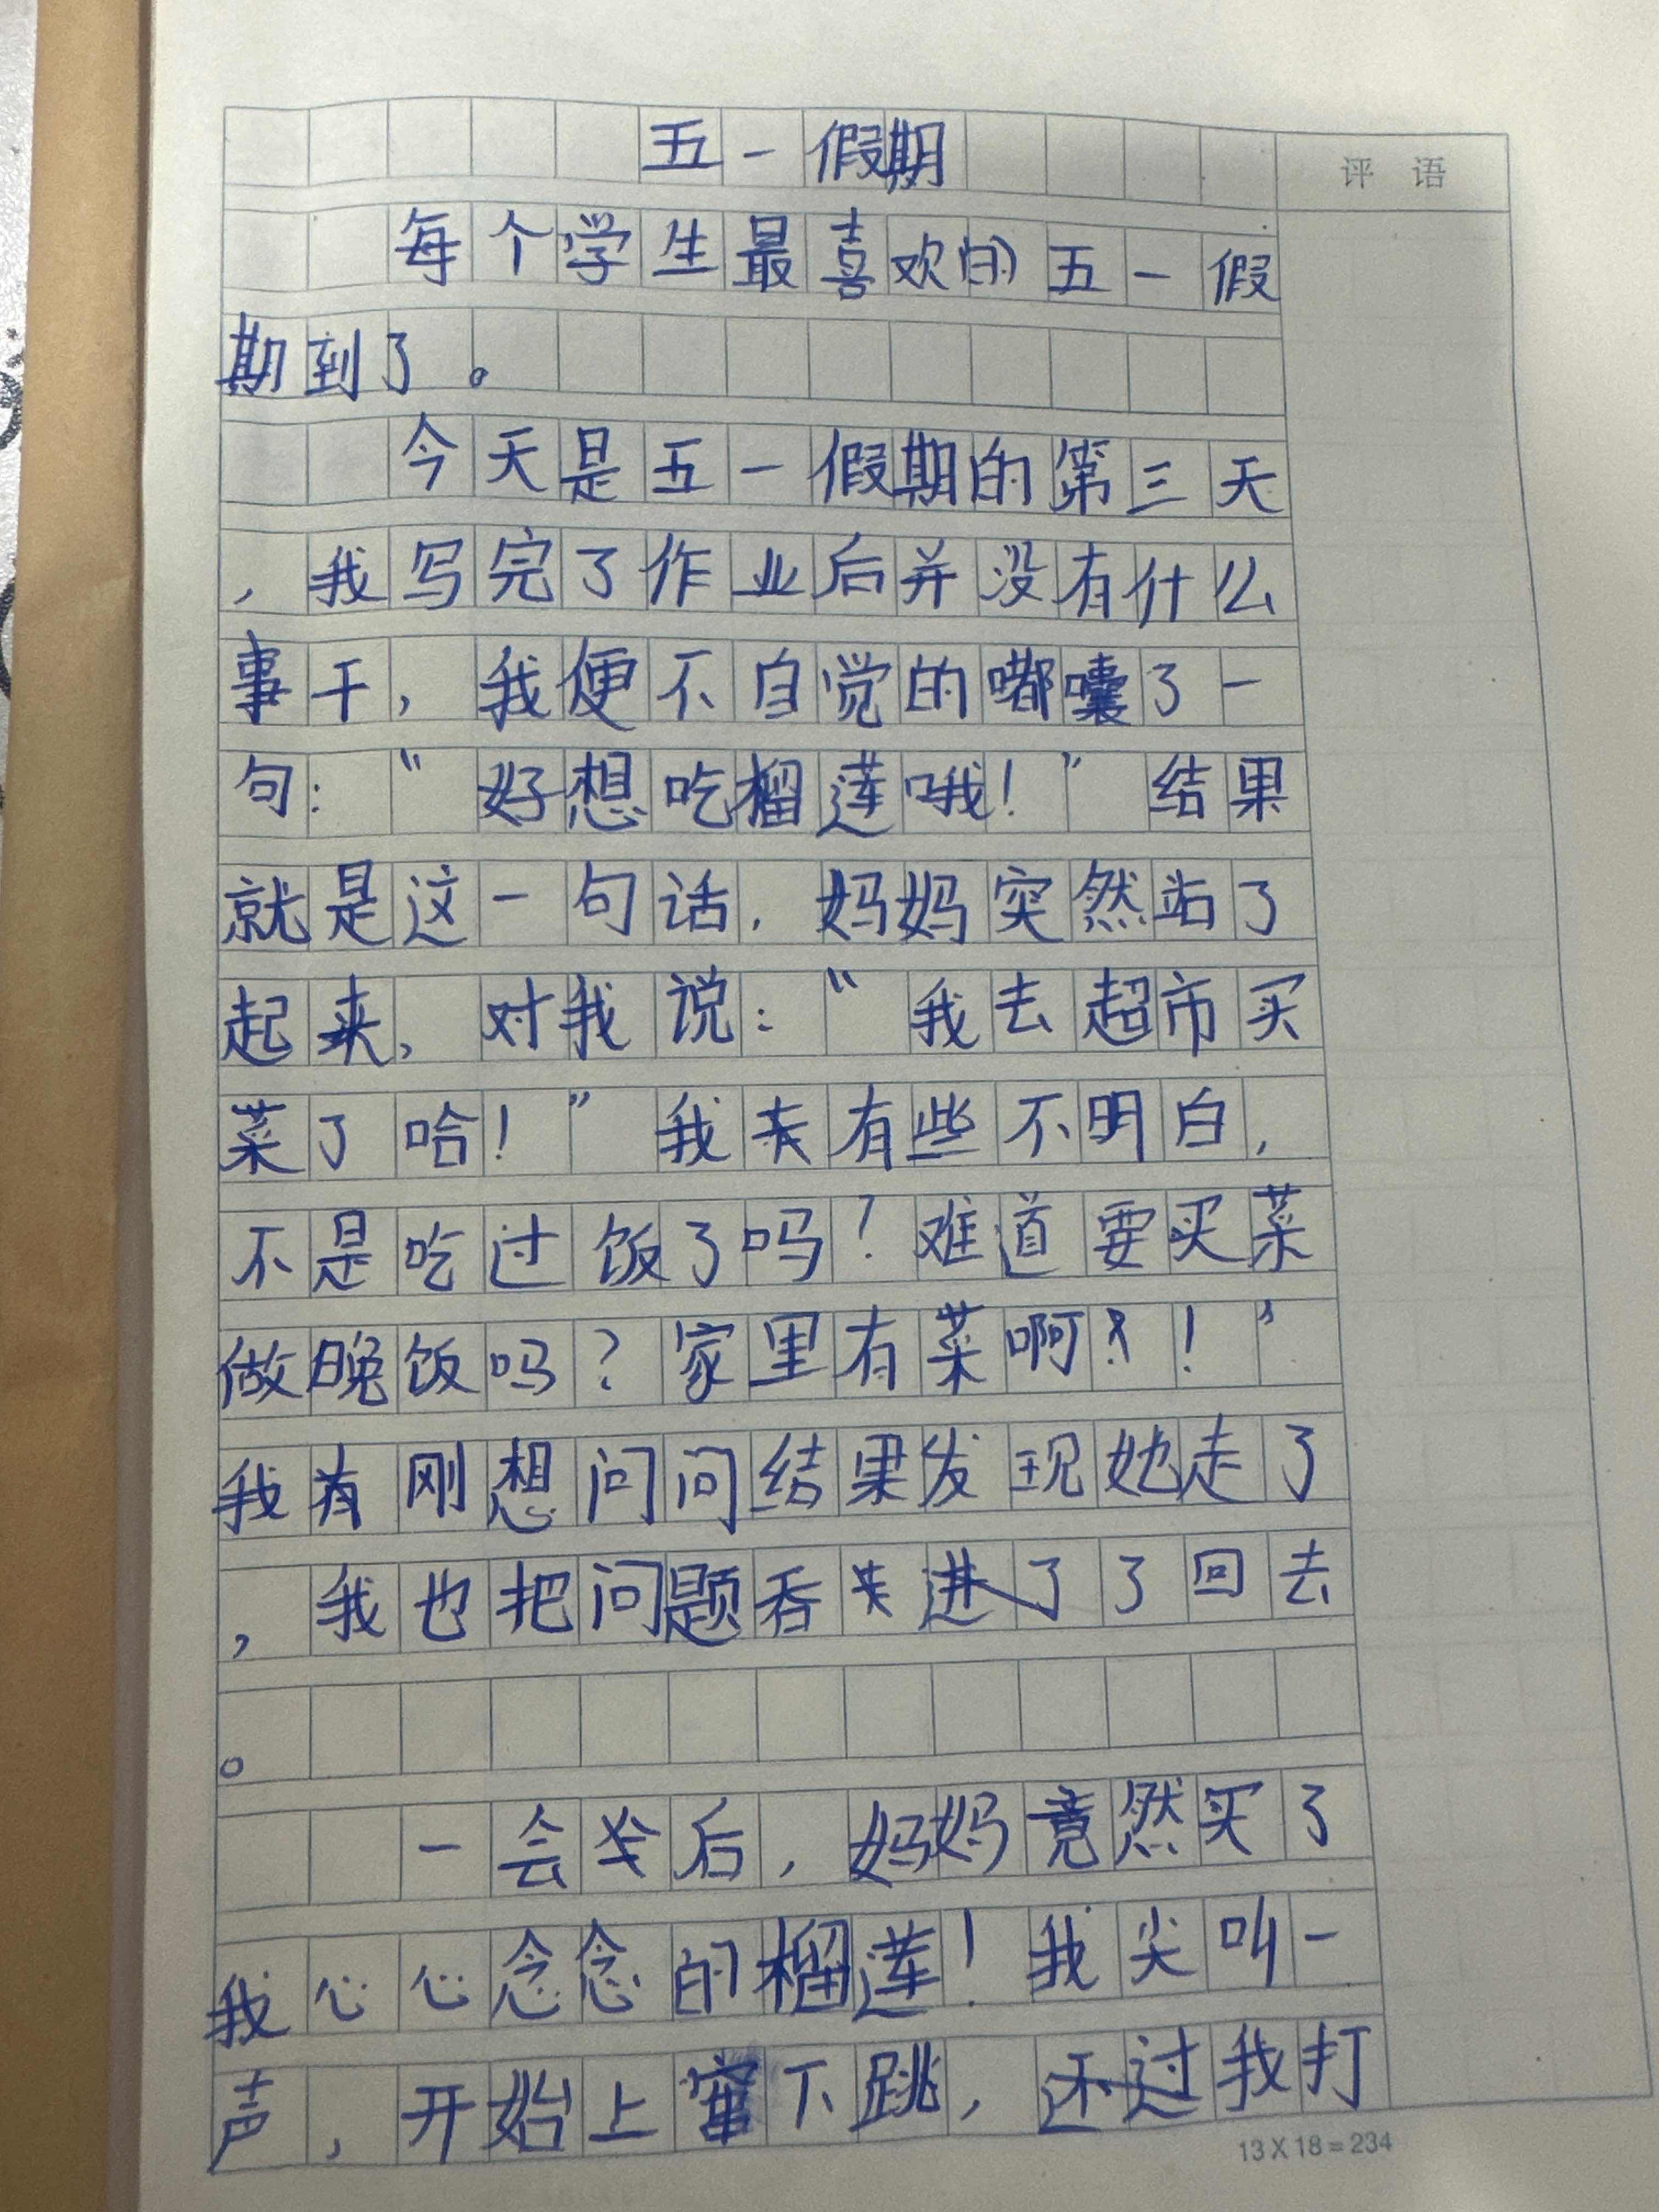 五一假期
评语
每个学生最喜欢的五一假
期到了。
今天是五一假期的第三天
，我写完了作业后并没有什么
事干，我便不自觉的嘟囔了一
句：“好想吃榴莲哦！”结果
就是这一句话，妈妈突然站了
起来，对我说：“我去超市买
菜了哈！”我有些不明白，
不是吃过饭了吗？难道要买菜
做晚饭吗？家里有菜啊！’
我刚想问问结果发现她走了
，我也把问题吞了回去
。
一会后，妈妈竟然买了
我心心念念的榴莲！我尖叫一
声，开始上窜下跳，还过我打
13X18=234